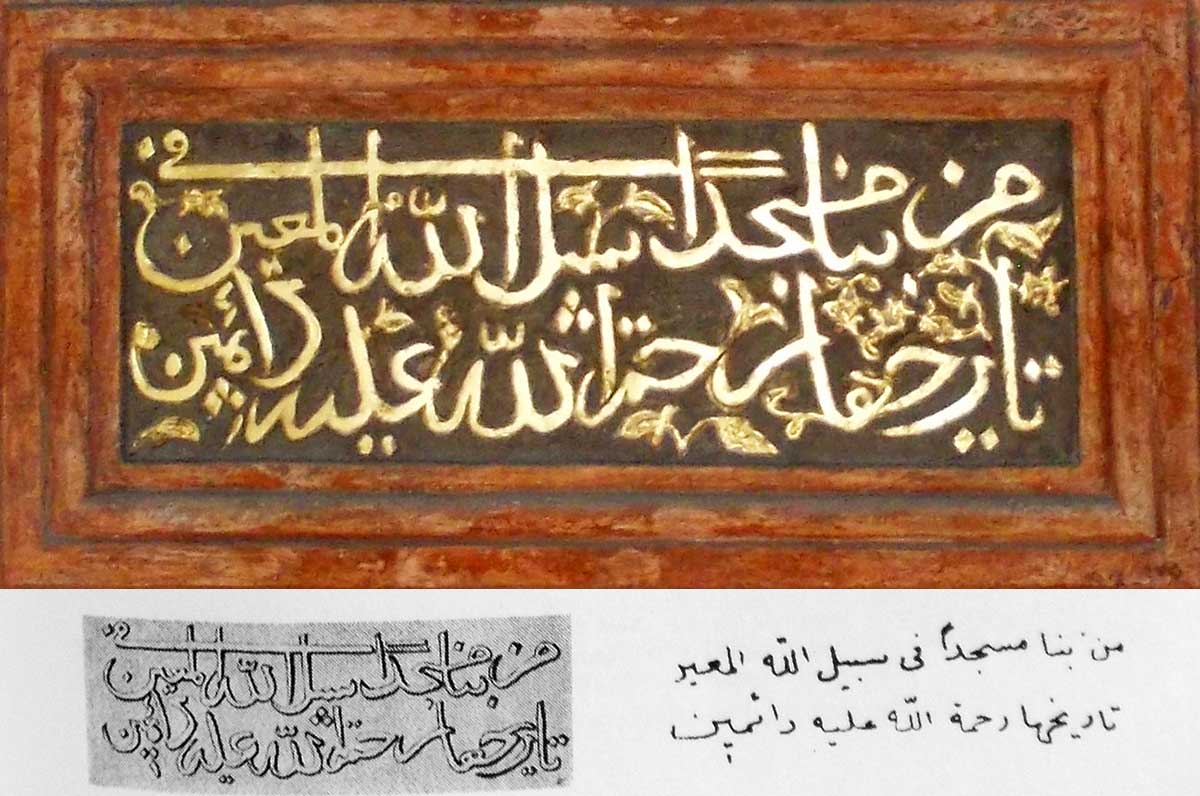 من بنا مسجداً فى سبيل الله المعين
تاريخها رحمة الله عليه دائمين
من بنا مسجداً فى سبيل الله المعين
تاريخها رحمة الله عليه دائمين
من بنا مسجداً فى سبيل الله المعير
تاريخها رحمة الله عليه دائمين